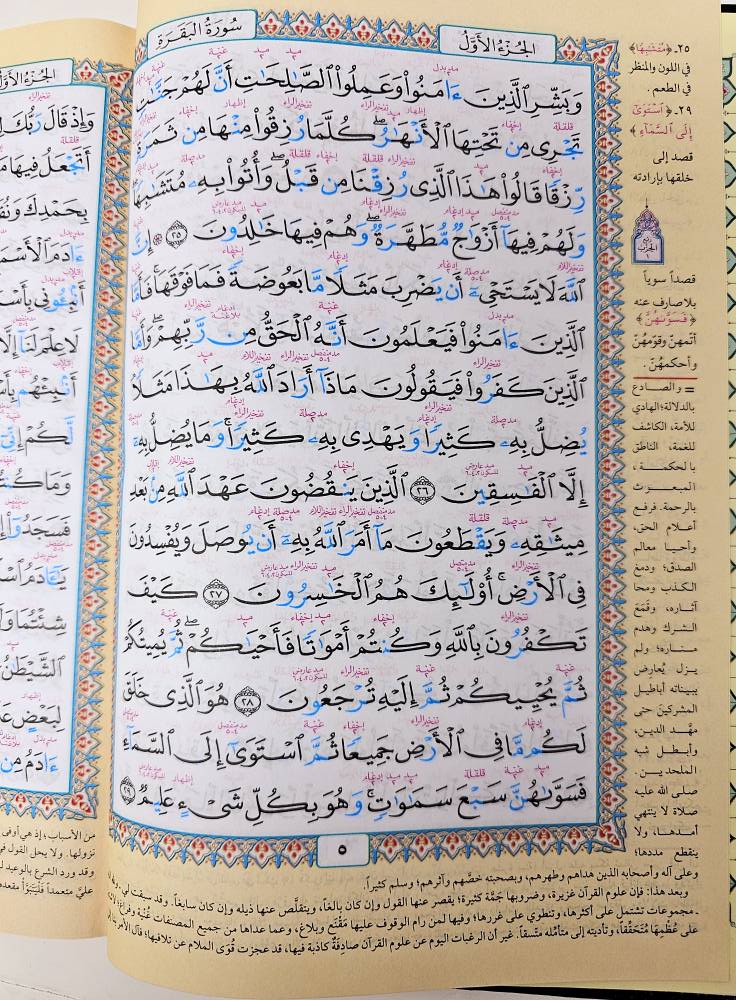 سُورَةُ البَقَرَةِ
الجُزءُ الأَوَّلُ
وَبَشِّرِ ٱلَّذِينَ ءَامَنُوا۟ وَعَمِلُوا۟ ٱلصَّٰلِحَٰتِ أَنَّ لَهُمْ جَنَّٰتٍ
تَجْرِى مِن تَحْتِهَا ٱلْأَنْهَٰرُ ۖ كُلَّمَا رُزِقُوا۟ مِنْهَا مِن ثَمَرَةٍ
رِّزْقًا قَالُوا۟ هَٰذَا ٱلَّذِى رُزِقْنَا مِن قَبْلُ ۖ وَأُتُوا۟ بِهِۦ مُتَشَٰبِهًا
وَلَهُمْ فِيهَآ أَزْوَٰجٌ مُّطَهَّرَةٌ ۖ وَهُمْ فِيهَا خَٰلِدُونَ ٢٥ ۞ إِنَّ
ٱللَّهَ لَا يَسْتَحْىِۦٓ أَن يَضْرِبَ مَثَلًا مَّا بَعُوضَةً فَمَا فَوْقَهَا ۚ فَأَمَّا
ٱلَّذِينَ ءَامَنُوا۟ فَيَعْلَمُونَ أَنَّهُ ٱلْحَقُّ مِن رَّبِّهِمْ ۖ وَأَمَّا
ٱلَّذِينَ كَفَرُوا۟ فَيَقُولُونَ مَاذَآ أَرَادَ ٱللَّهُ بِهَٰذَا مَثَلًا ۘ
يُضِلُّ بِهِۦ كَثِيرًا وَيَهْدِى بِهِۦ كَثِيرًا ۚ وَمَا يُضِلُّ بِهِۦٓ
إِلَّا ٱلْفَٰسِقِينَ ٢٦ ٱلَّذِينَ يَنقُضُونَ عَهْدَ ٱللَّهِ مِنۢ بَعْدِ
مِيثَٰقِهِۦ وَيَقْطَعُونَ مَآ أَمَرَ ٱللَّهُ بِهِۦٓ أَن يُوصَلَ وَيُفْسِدُونَ
فِى ٱلْأَرْضِ ۚ أُو۟لَٰٓئِكَ هُمُ ٱلْخَٰسِرُونَ ٢٧ كَيْفَ
تَكْفُرُونَ بِٱللَّهِ وَكُنتُمْ أَمْوَٰتًا فَأَحْيَٰكُمْ ۖ ثُمَّ يُمِيتُكُمْ
ثُمَّ يُحْيِيكُمْ ثُمَّ إِلَيْهِ تُرْجَعُونَ ٢٨ هُوَ ٱلَّذِى خَلَقَ
لَكُم مَّا فِى ٱلْأَرْضِ جَمِيعًا ثُمَّ ٱسْتَوَىٰٓ إِلَى ٱلسَّمَآءِ
فَسَوَّىٰهُنَّ سَبْعَ سَمَٰوَٰتٍ ۚ وَهُوَ بِكُلِّ شَىْءٍ عَلِيمٌ ٢٩
٥
٢٥- ﴿مُتَشَٰبِهًا﴾
في اللون والمنظر
في الطعم .
٢٩- ﴿ٱسْتَوَىٰٓ
إِلَى ٱلسَّمَآءِ﴾
قصد إلى
خلقها بإرادته
ربع الحزب ١
قصداً سوياً
بلا صارف عنه
﴿فَسَوَّىٰهُنَّ﴾
أتمهنّ وقومهُنّ
وأحكمهُنّ.
= والصادع
بالدلالة؛ الهادي
للأمة، الكاشف
للغمة، الناطق
بالحكمة،
المبعوث
بالرحمة. فرفع
أعلام الحق،
وأحيا معالم
الصدق؛ ودمغ
الكذب ومحا
آثاره، وقمَعَ
الشرك وهدم
مناره؛ ولم
يزل يُعارض
ببيناته أباطيل
المشركين حتى
مهَّد الدين،
وأبطل شبه
الملحدين.
صلى الله عليه
صلاة لا ينتهي
أمدها، ولا
ينقطع مددها؛
وعلى آله وأصحابه الذين هداهم وطهرهم، وبصحبته خصَّهم وآثرهم؛ وسلم كثيراً.
وبعد هذا: فإن علوم القرآن غزيرة، وضروبها جَمَّة كثيرة؛ يقصر عنها القول وإن كان بالغاً، ويتقلَّص عنها ذيله وإن كان سابغاً. وقد سبقت لي
مجموعات تشتمل على أكثرها، وتنطوي على غررها؛ وفيها لمن رام الوقوف عليها مَقْنَع وبلاغ، وعما عداها من جميع المصنفات غُنْية وفراغ؛
على عُظْمِها مُتَحَقّقاً، وتأديته إلى متأمّله متّسقاً. غير أن الرغبات اليوم عن علوم القرآن صادِفةٌ كاذبة فيها، قد عجزت قُوَى الملام عن تلافيها؛
الجُزءُ الأَوَّل
وَإِذْ قَالَ رَبُّكَ
أَتَجْعَلُ فِيهَا
بِحَمْدِكَ
ءَادَمَ ٱلْأَسْمَ
أَنۢبِـُٔونِى بِأَسْ
لَا عِلْمَ لَنَآ إِلَّا
أَنۢبِئْهُم بِأَسْ
لَّكُمْ إِنِّى
وَمَا كُنتُ
فَسَجَدُوٓا۟ إِ
يَٰٓـَٔادَمُ ٱسْ
شِئْتُمَا وَلَا
ٱلشَّيْطَٰنُ
لِبَعْضٍ عَدُ
ءَادَمُ مِن
من الأسباب؛ إذ هي أوفى
نزولها. ولا يحل القول في
وقد ورد الشرع بالوعيد
عليَّ متعمداً فَلْيَتَبَوَّأْ مقعده